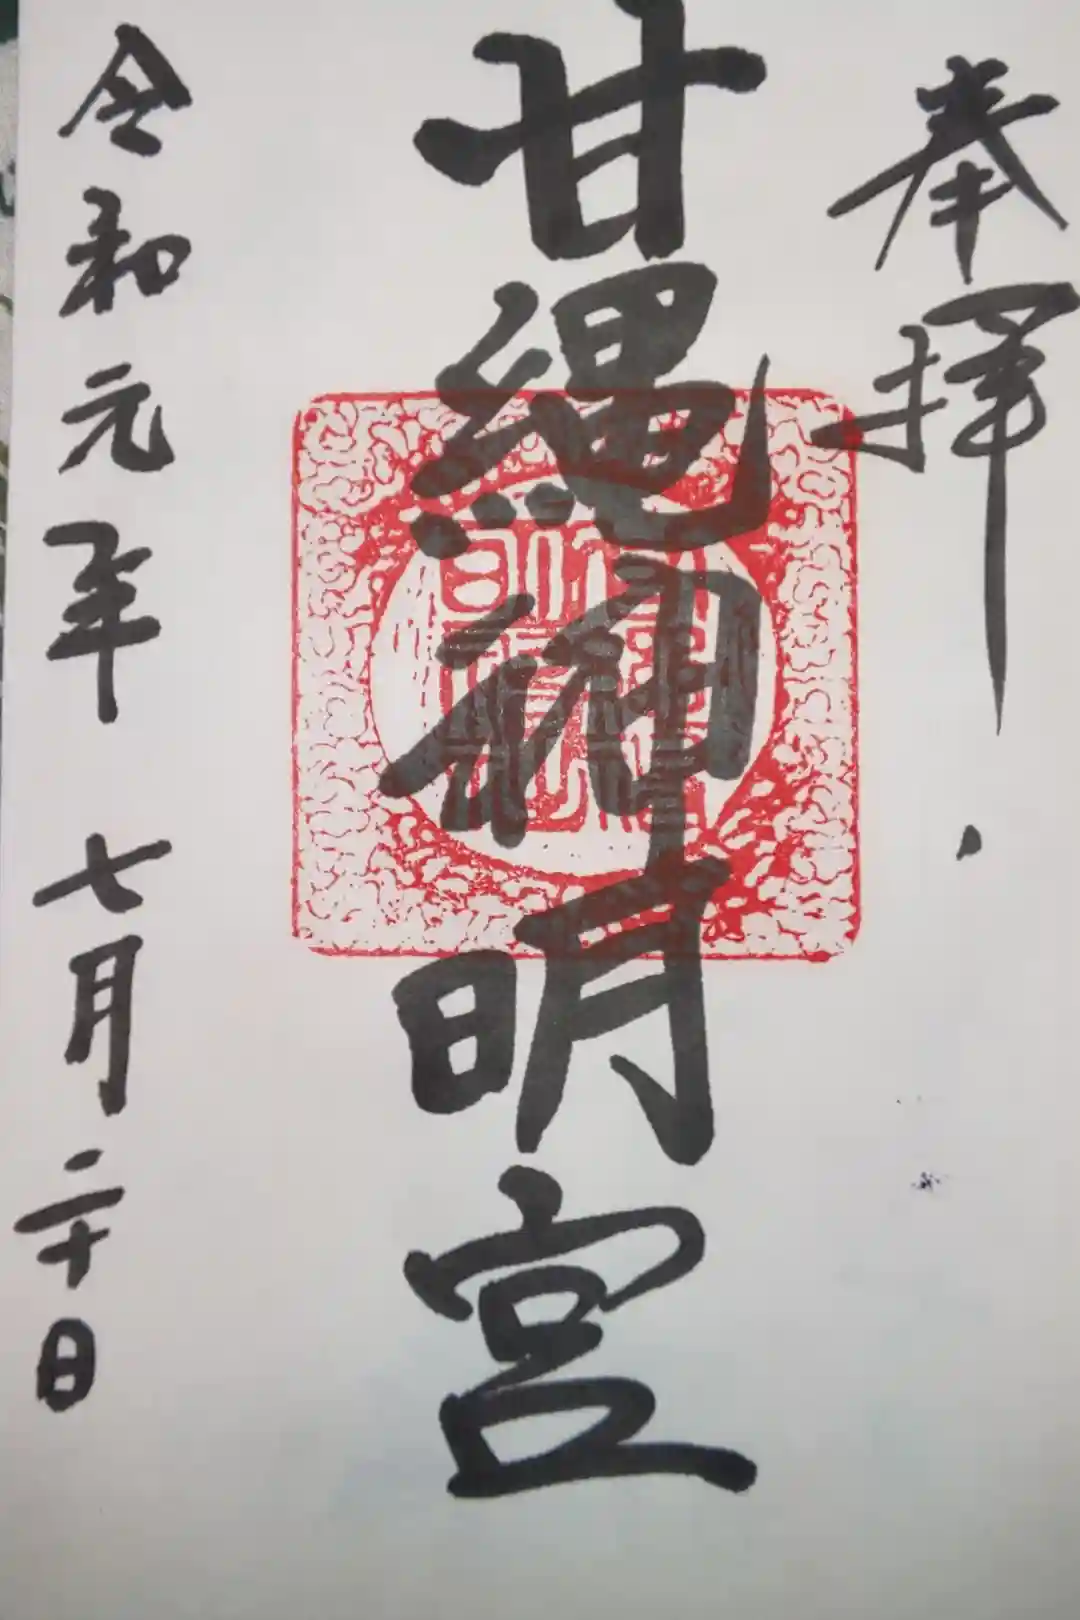 奉拝
甘縄神明宮
令和元年 七月二十日